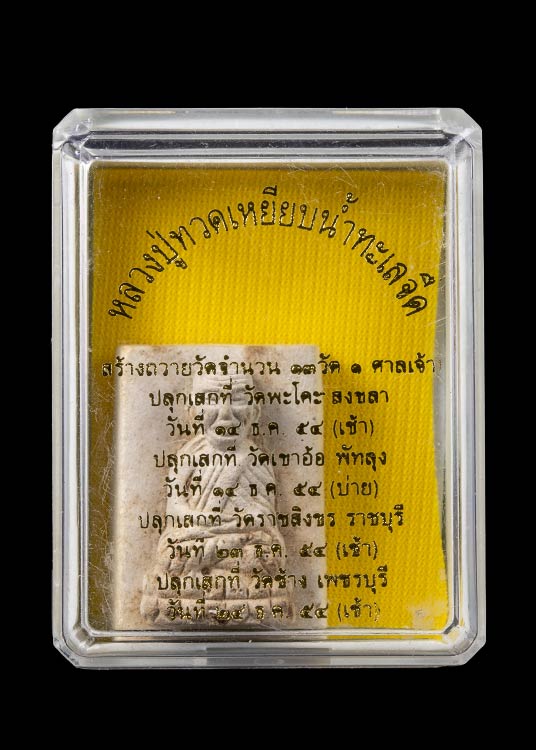 หลวงปู่ทวดเหยียบน้ำทะเลจืด
สร้างถวายวัดจำนวน ๑๓วัด ๑ ศาลเจ้า
ปลุกเสกที่ วัดพะโคะ สงขลา
วันที่ ๑๔ ธ.ค. ๕๔ (เช้า)
ปลุกเสกที่ วัดเขาอ้อ พัทลุง
วันที่ ๑๔ ธ.ค. ๕๔ (บ่าย)
ปลุกเสกที่ วัดราชสิงขร ราชบุรี
วันที่ ๒๓ ธ.ค. ๕๔ (เช้า)
ปลุกเสกที่ วัดช้าง เพชรบุรี
วันที่ ๒๔ ธ.ค. ๕๔ (เช้า)